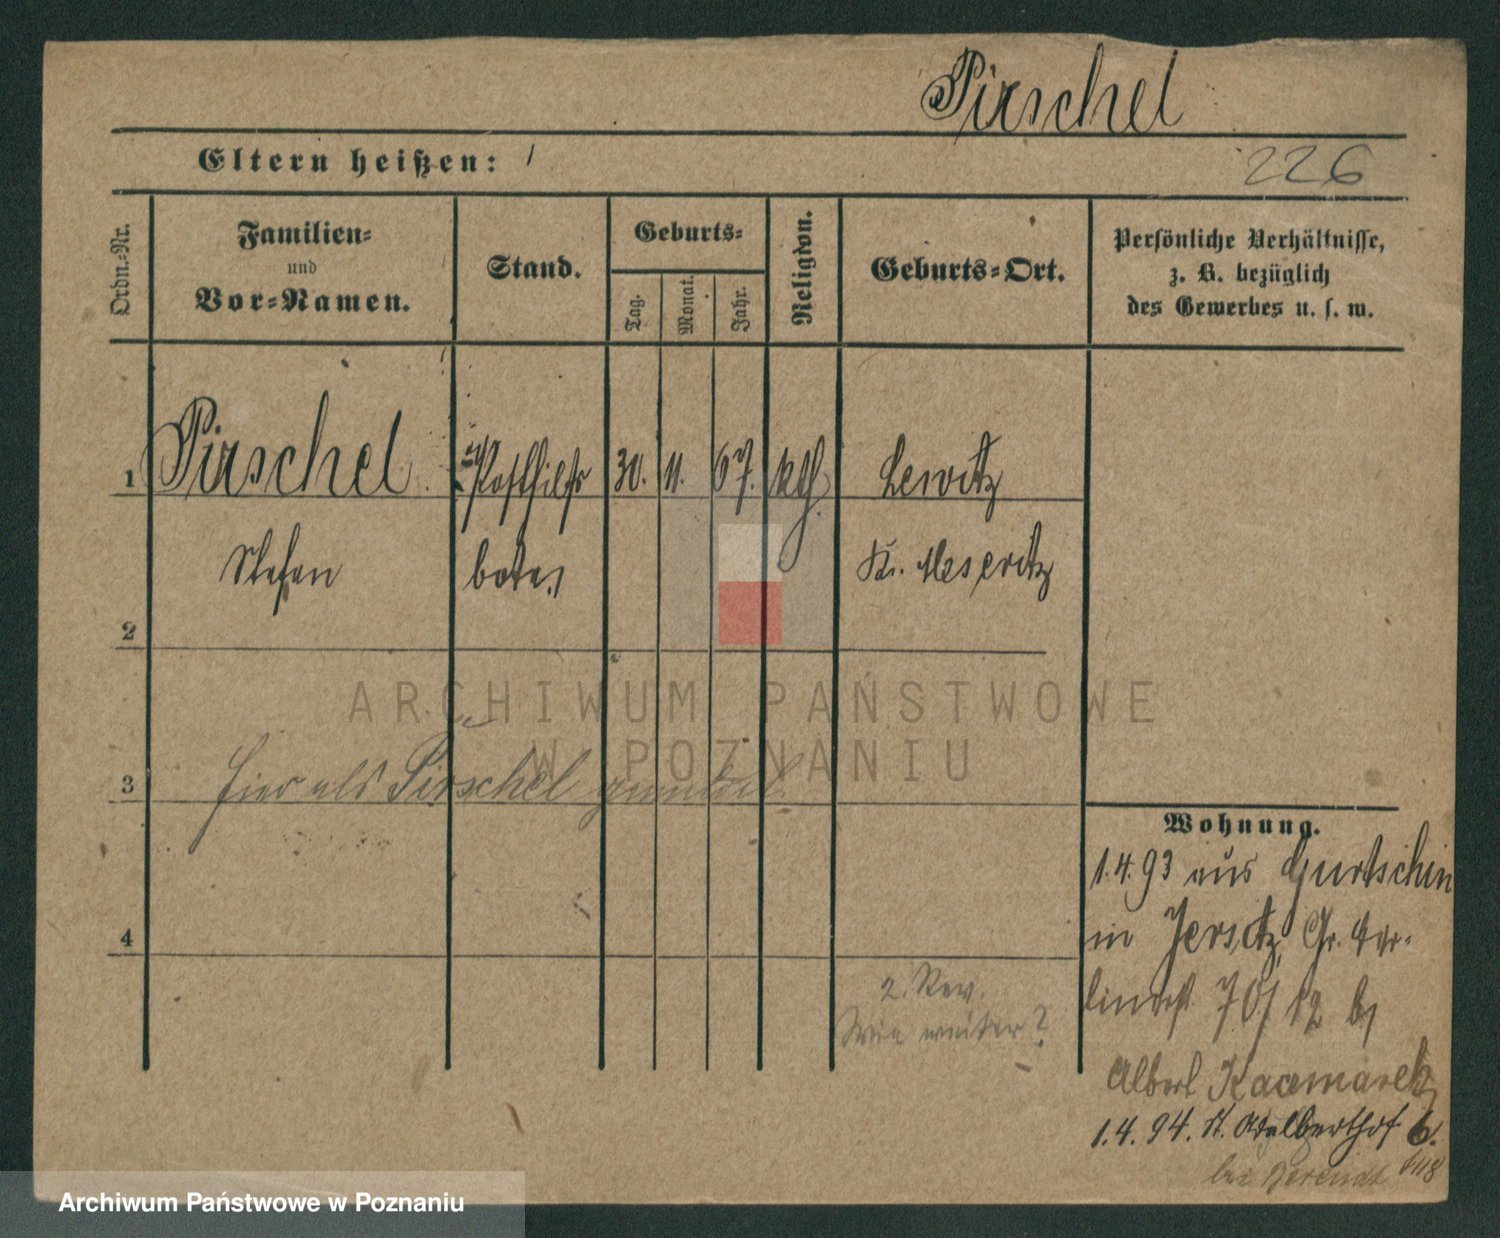 Pirschel
Eltern heißen:
226
Ordn.-Nr.
Familien-
und
Vor-Namen.
Stand.
Geburts-
Tag.
Monat.
Jahr.
Religion.
Geburts-Ort.
Persönliche Verhältnisse,
z. B. bezüglich
des Gewerbes u. s. w.
1 Pirschel Posthilfs 30. 11. 67. kth. Lewitz
Stefan bote Kr. Meseritz
2
ARCHIWUM PAŃSTWOWE
W POZNANIU
3 hier als Pirschel gemeldet
4
2. Rev.
Wie weiter?
Wohnung.
1.4.93 aus Gurtschin
in Jersitz, Gr. Ber-
linerst. 70/ 12 b/
Albert Kaczmarek,
1.4.94. St. Adalberthof 6.
bei Berendt
Archiwum Państwowe w Poznaniu